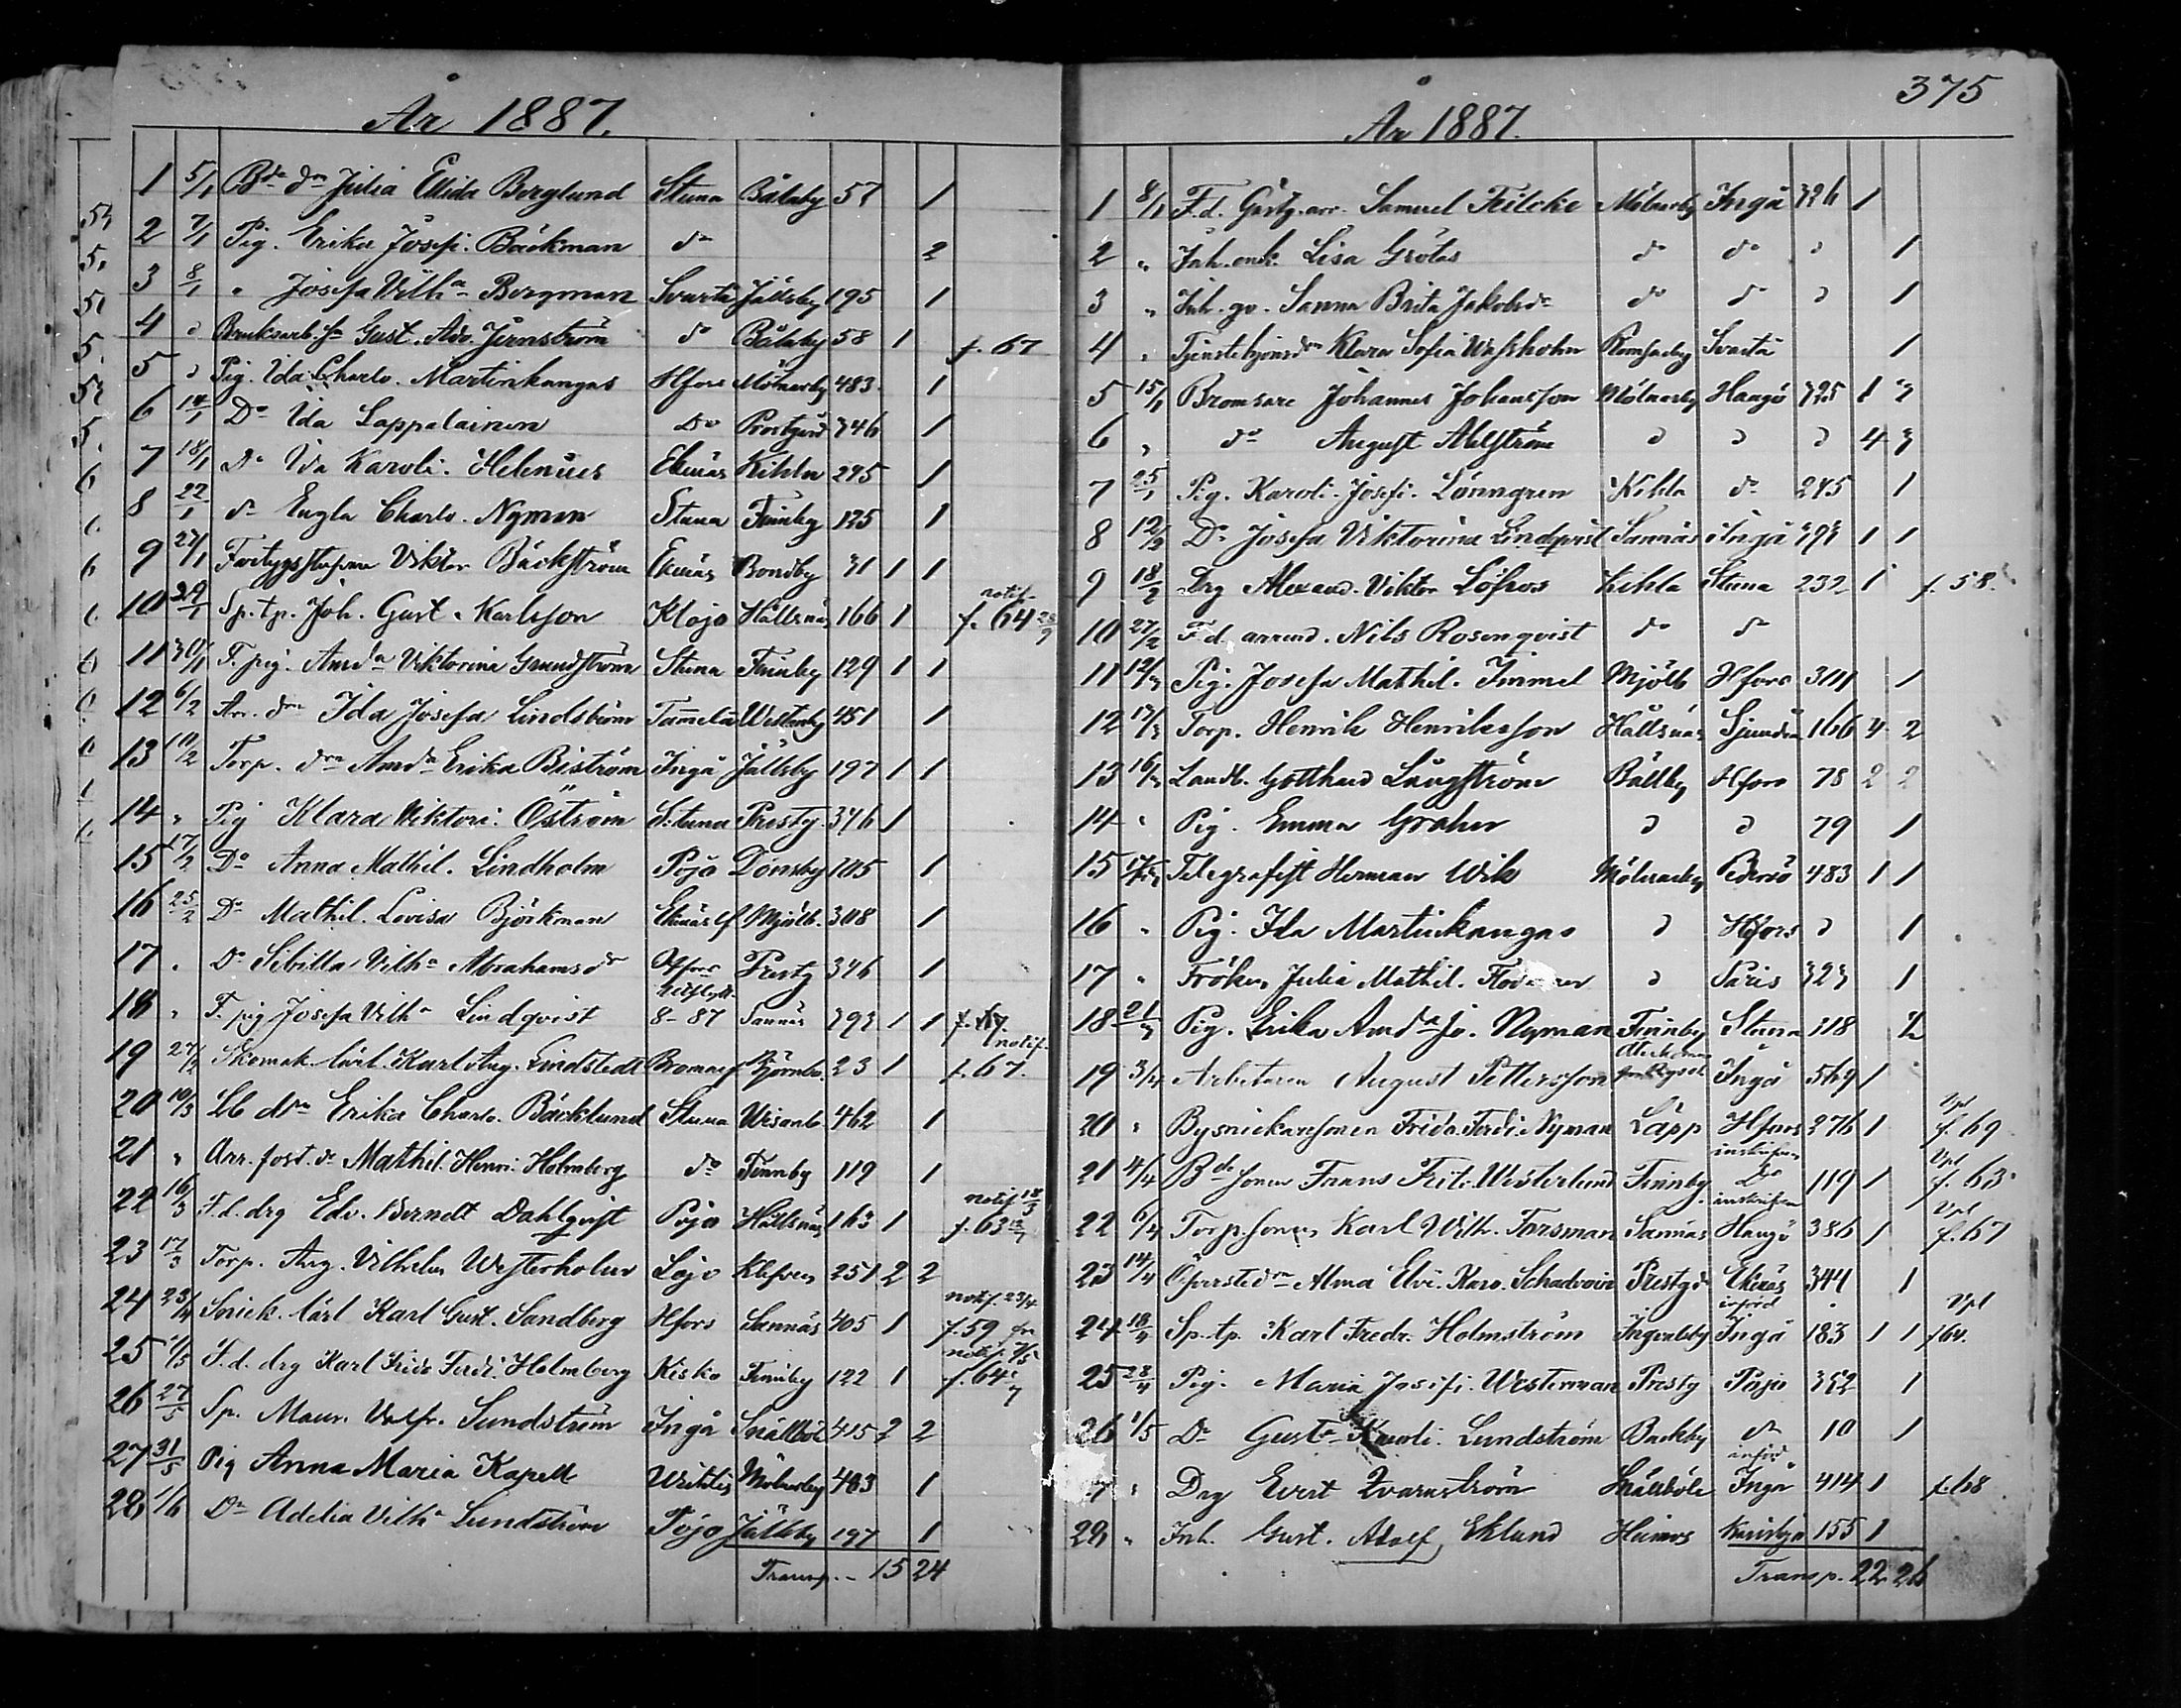 År 1887.
1 5/1 Bde dr Julia Elida Berglund Stuna Bålaby 57 1
2 7/1 Pig. Erika Josefi. Bäckman do 2
3 8/1 " Josefa Vilha Bergman Svartå Jällsby 195 1
4 d Bruksarb. Gust. Adv. Jernström do Bålaby 58 1 f. 67
5 d Pig. Ida Charlo. Martinkangas Hfors Mölnarby 483 1
6 14/1 Do Ida Lappalainen do Prestgård 346 1
7 18/1 Do Ida Karoli. Helenius Ekenäs Kihla 245 1
8 22/1 do Engla Charlo. Nyman Stuna Finnby 125 1
9 27/1 Viktor Bäckström Ekenäs Bondby 31 1 1
10 29/1 Sp. tp. Joh. Gust. Karlsson Klojo Hållsnäs 166 1 notif. f. 64
11 30/1 F. pig. Amda Viktorina Grundström Stuna Finnby 129 1 1
12 6/2 Arr. dr Ida Josefa Lindström Tammela Westerby 451 1
13 10/2 Torp. dra Amda Erika Biström Ingå Jällsby 197 1 1
14 " Pig Klara Viktori. Öström S. tuna Prestg. 346 1
15 17/2 Do Anna Mathil. Lindholm Pojo Dönsby 105 1
16 25/2 Do Mathil. Lovisa Björkman Ekenäs lf Mjölb. 308 1
17 " Do Sibilla Vilha Abrahamsdr Hfors Prestg 346 1
18 " F. pig Josefa Vilha Lindqvist 8-87 Sannäs 393 1 1 f. 67
19 27/2 Skomak. lärl. Karl Aug. Lindstedt Bromarf Björnbo. 23 1 notif. f. 67.
20 10/3 Lb dra Erika Charlo. Bäcklund Stuna Wisanb. 462 1
21 " Arr. fost. dr Mathil. Henri. Holmberg do Finnby 119 1
22 16/3 F. d. drg Edv. Berndt Dahlqvist Pojo Hållsnäs 163 1 notif 18/3 f. 63
23 17/3 Torp. Aug. Vilhelm Westerholm Lojo Klefven 251 2 2
24 23/4 Snick. lärl Karl Gust. Sandberg Hfors Sannäs 405 1 notif. 23/4 f. 59
25 1/5 F. d. drg Karl Frido Ferdi. Holmberg Kisko Finnby 122 1 notif. f. 64
26 27/5 Sp. Maur. Valfr. Sundström Ingå Snällböl 415 2 2
27 31/5 Pig Anna Maria Kapell Wichtis Mölnarby 483 1
28 1/6 Do Adelia Vilha Lundström Pojo Jällsby 197 1
Transp. 15 24
375
År 1887.
1 8/1 F. d. Gästg. arr. Samuel Feilcke Mölnarby Ingå 326 1
2 " Inh. enk. Lisa Grötas do do d 1
3 " Inh. Sanna Brita Jakobsdr do do d 1
4 " Klara Sofia Wassholm Svartå 1
5 15/1 Bromsare Johannes Johansson Mölnarby Hangö 325 1 3
6 " do August Ahlström d d d 4 3
7 25/1 Pig. Karoli. Josefi. Lönngren Kihla do 245 1
8 12/2 Do Josefa Viktorina Lindqvist Sannäs Ingå 393 1 1
9 18/2 Drg Alexand. Viktor Löfroos Kihla Stuna 232 1 f. 58.
10 27/2 F. d. arrend. Nils Rosenqvist do do
11 12/3 Pig. Josefa Mathil. Immel Mjölb Hfors 301 1
12 17/3 Torp. Henrik Henriksson Hållsnäs Sjundeå 166 4 2
13 16/3 Landb. Gotthard Långström Bålaby Hfors 78 2 2
14 " Pig. Emma Graher d d 79 1
15 17/3 Telegrafist Herman Wik Mölnarby Pedersö 483 1 1
16 " Pig. Ida Martinkangas d Hfors d 1
17 " Fröken Julia Mathil. d Paris 323 1
18 21/3 Pig. Erika Amda Jo. Nyman Finnby Stuna 118 1/2
19 3/4 Arbetaren August Pettersson Ingå 569 1
20 " Bysnickaresonen Frido Ferdi. Nyman Läpp Hfors 276 1 Vpl f. 69
21 4/4 Bde sonen Frans Fritj. Westerlund Finnby do 119 1 Vpl f. 63
22 6/4 Torp. sonen Karl Wilh. Forsman Sannäs Hangö 386 1 Vpl f. 67
23 14/4 Öfverste dr Alma Elvi. Karo. Schadvoir Prestgd Ekenäs 344 1
24 18/4 Sp. tp. Karl Fredr. Holmström Ingvalsby Ingå 183 1 1 Vpl f 60.
25 28/4 Pig. Maria Josefi. Westerman Prestg Pojo 352 1
26 1/5 Do Gusta Karoli. Lundström Backby do 10 1
7 " Drg Evert Qvarnström Snällböle Ingå 414 1 f. 68
28 " Inh. Gust. Adolf Eklund Heimos Karisloj 155 1
Transp. 22 26